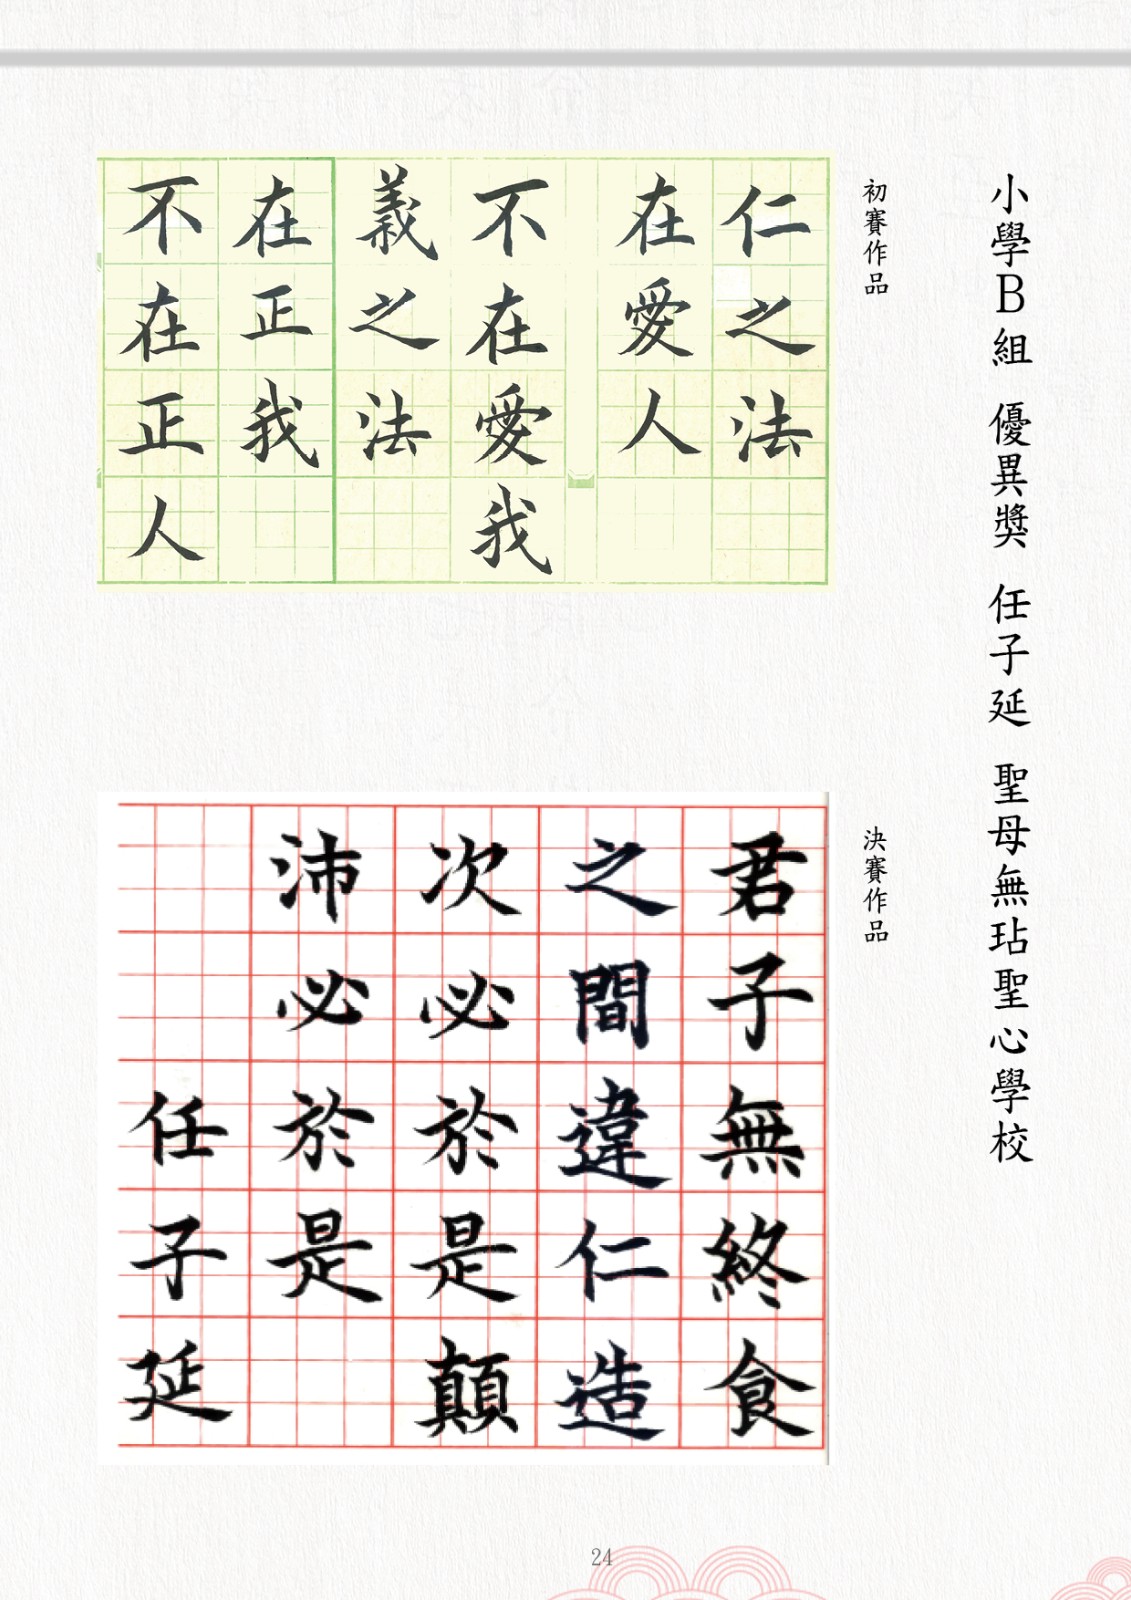 小學B組 優異獎 任子延 聖母無玷聖心學校
初賽作品
仁之法
在愛人
不在愛我
義之法
在正我
不在正人
決賽作品
君子無終食
之間違仁造
次必於是顛
沛必於是
任子延
24